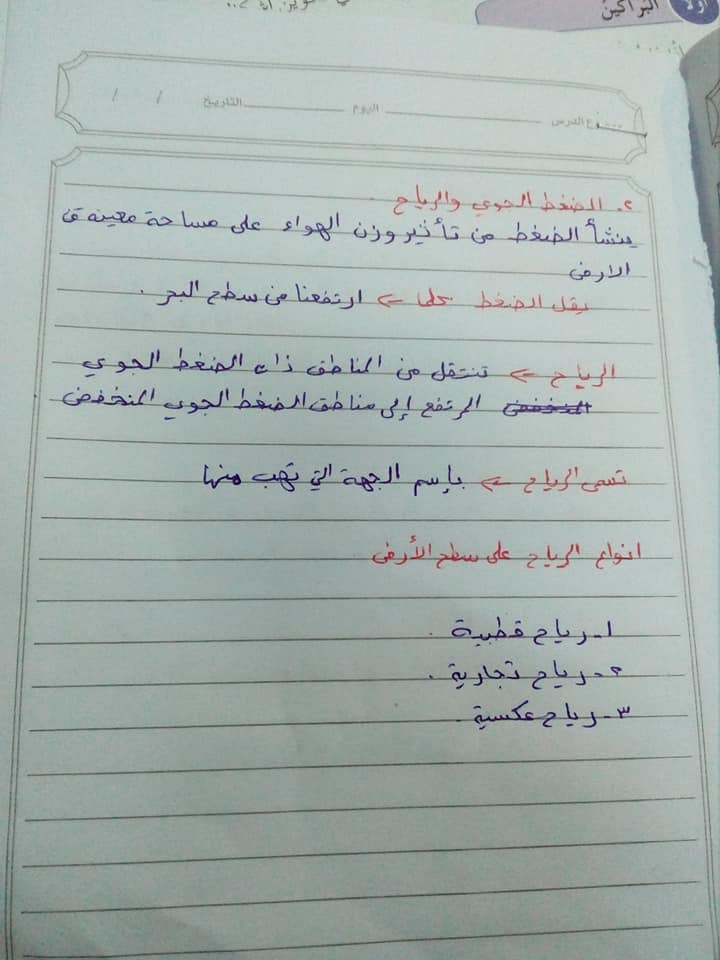 أولا
البراكين
موضوع الدرس اليوم التاريخ / /
٢. الضغط الجوي والرياح
ينشأ الضغط من تأثير وزن الهواء على مساحة معينة من
الارض
يقل الضغط كلما ← ارتفعنا من سطح البحر.
الرياح ← تنتقل من المناطق ذات الضغط الجوي
المرتفع إلى مناطق الضغط الجوي المنخفض
تسمى الرياح ← بإسم الجهة التي تهب منها
انواع الرياح على سطح الأرض
١- رياح قطبية.
٢- رياح تجارية.
٣- رياح عكسية.